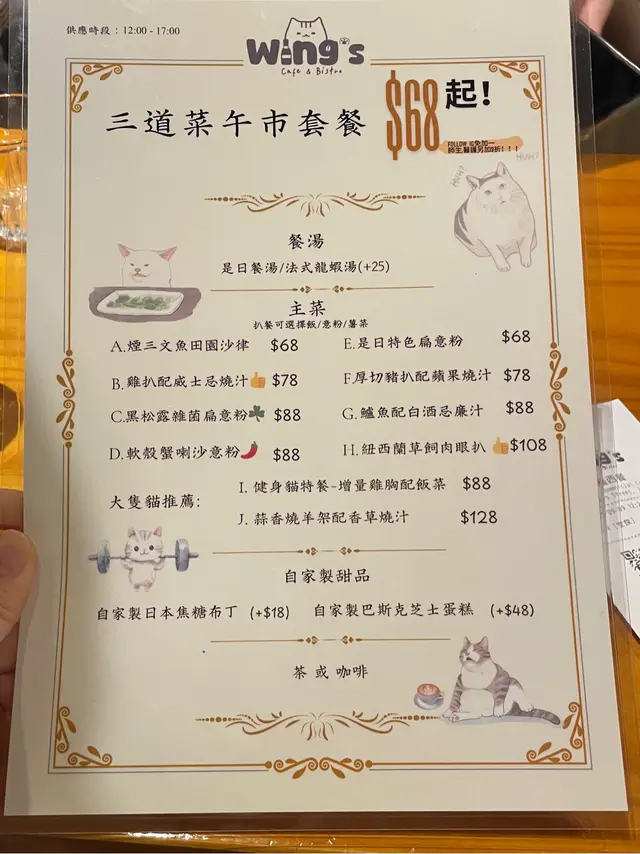 供應時段：12:00 - 17:00
Wing's
Cafe & Bistro
三道菜午市套餐 $68起！
FOLLOW IG免加一
師生,醫護另加9折!!!
HUH?
HUH?
餐湯
是日餐湯/法式龍蝦湯(+25)
主菜
扒餐可選擇飯/意粉/薯菜
A.煙三文魚田園沙律 $68
E.是日特色扁意粉 $68
B.雞扒配威士忌燒汁👍 $78
F.厚切豬扒配蘋果燒汁 $78
C.黑松露雜菌扁意粉☘️ $88
G.鱸魚配白酒忌廉汁 $88
D.軟殼蟹喇沙意粉🌶️ $88
H.紐西蘭草飼肉眼扒 👍$108
大隻貓推薦:
I. 健身貓特餐-增量雞胸配飯菜 $88
J. 蒜香燒羊架配香草燒汁 $128
自家製甜品
自家製日本焦糖布丁 (+$18) 自家製巴斯克芝士蛋糕 (+$48)
茶 或 咖啡